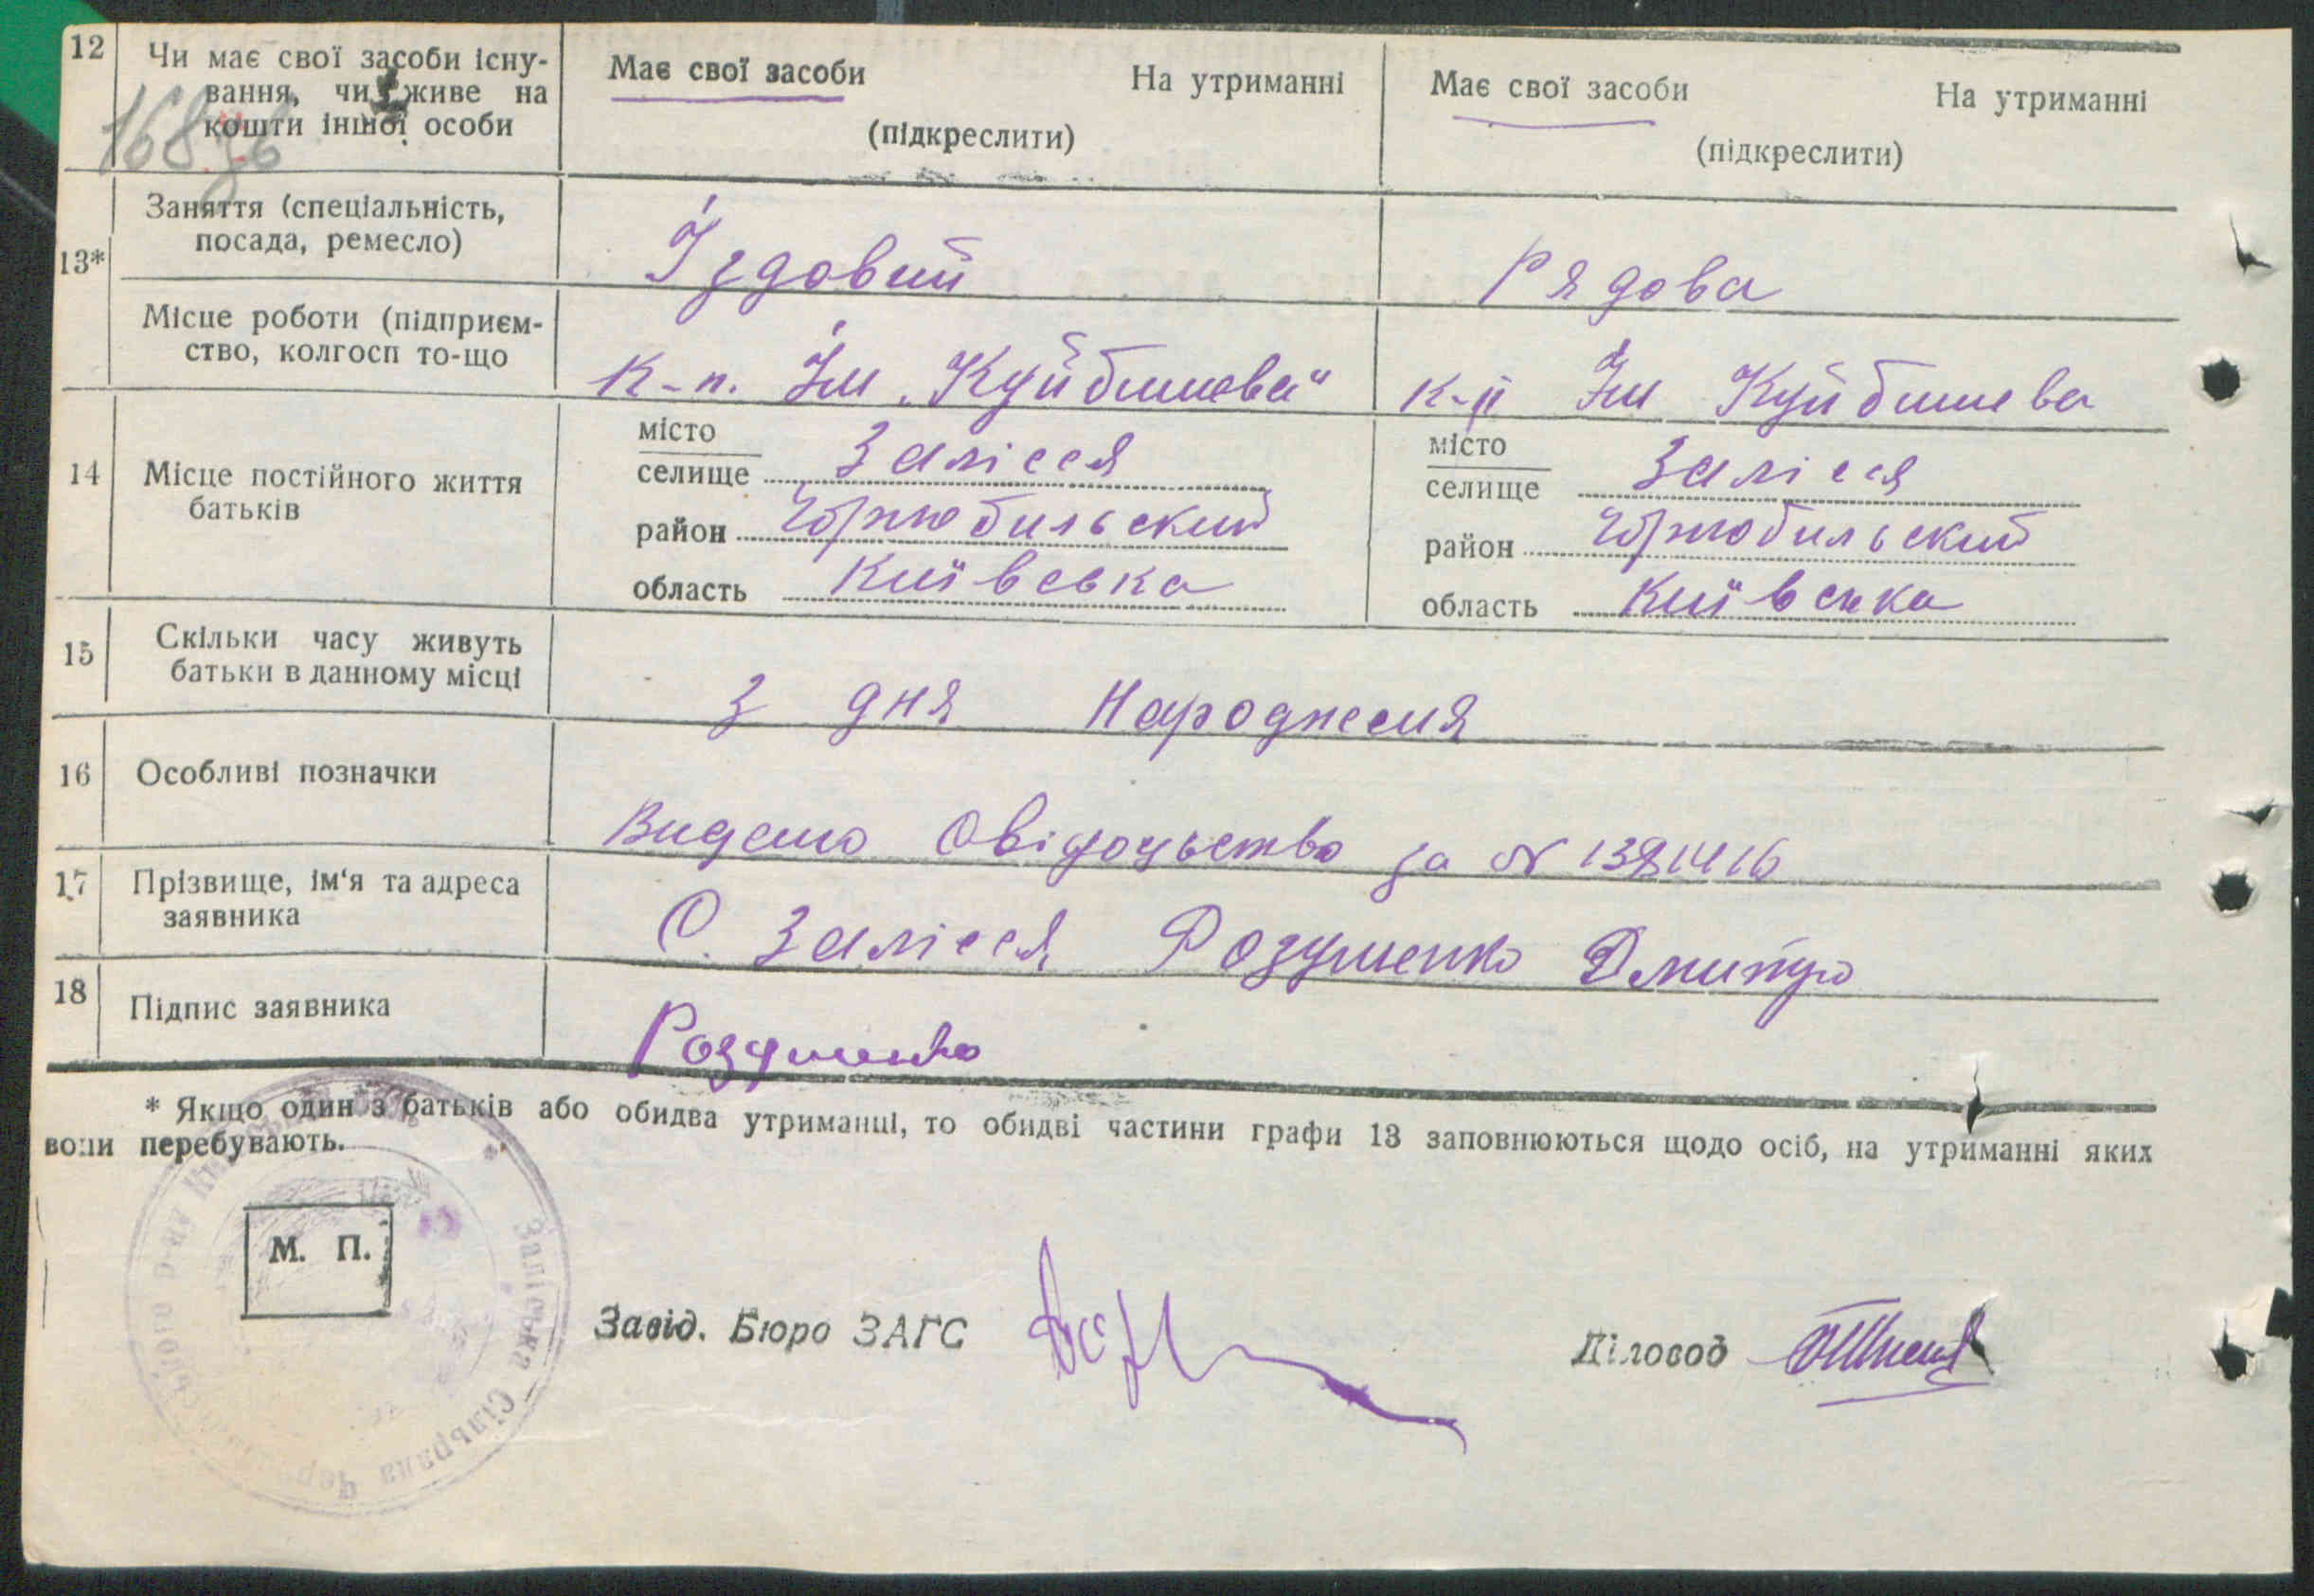 12
Чи має свої засоби існу-
вання, чи живе на
кошти іншої особи
168
Має свої засоби На утриманні
(підкреслити)
Має свої засоби На утриманні
(підкреслити)
13*
Заняття (спеціальність,
посада, ремесло)
Їздовий
Рядова
Місце роботи (підприєм-
ство, колгосп то-що
К-п. Ім „Куйбишева"
К-п Ім Куйбишева
14
Місце постійного життя
батьків
місто
селище Залісся
район Чорнобильский
область Київська
місто
селище Залісся
район Чорнобильский
область Київська
15
Скільки часу живуть
батьки в данному місці
З дня Народження
16
Особливі позначки
Видано Свідоцьство за №
17
Прізвище, ім'я та адреса
заявника
С. Залісся Розуменко Дмитро
18
Підпис заявника
Розуменко
* Якщо один з батьків або обидва утриманці, то обидві частини графи 13 заповнюються щодо осіб, на утриманні яких
вони перебувають.
М. П.
Заліська Сільрада
Завід. Бюро ЗАГС
Діловод